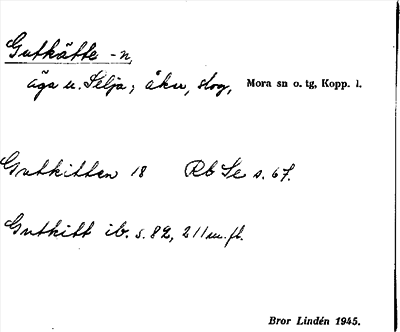 Gutkätte -n,
äga u. Selja; åker, skog, Mora sn o. tg, Kopp. l.
Gutkitten 18 Rb Se s. 67.
Gutkitt ib. s. 82, 211 m. fl.
Bror Lindén 1945.